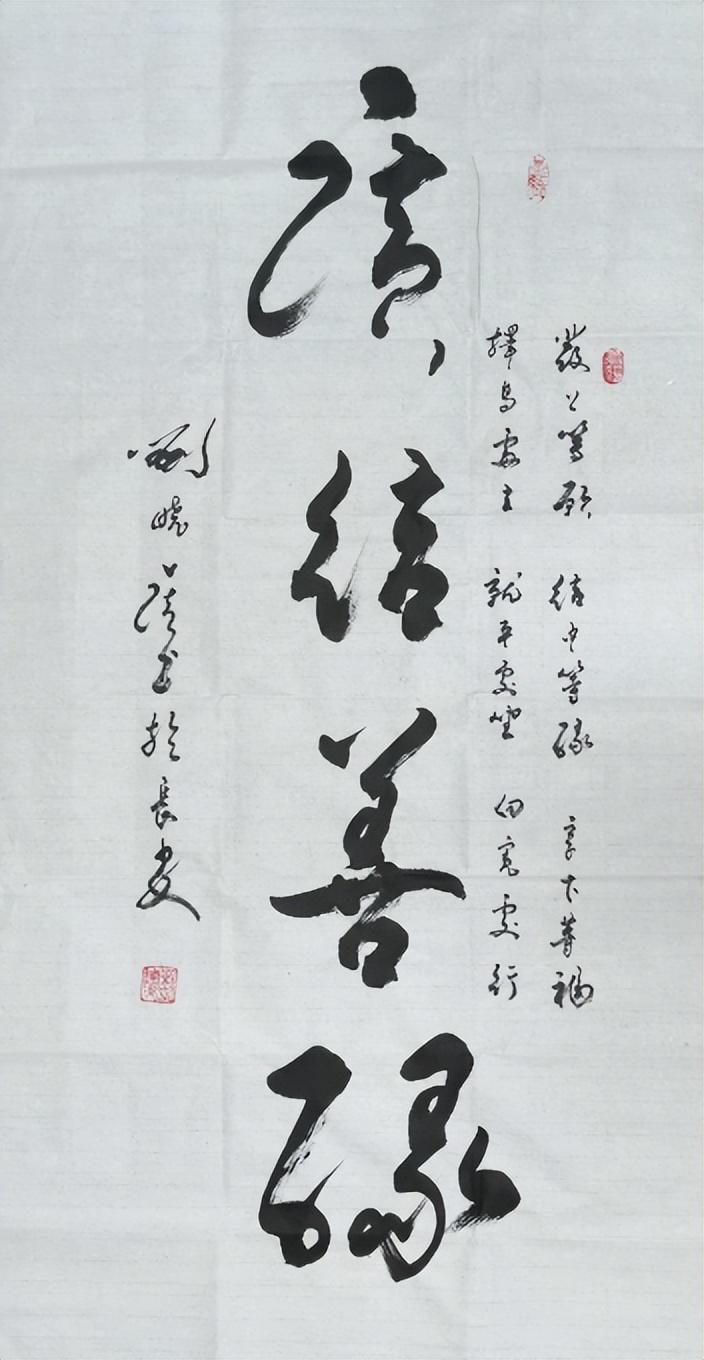 發上等願 結中等緣 享下等福
擇高處立 就平處坐 向寬處行
廣結善緣
曉 書於長安